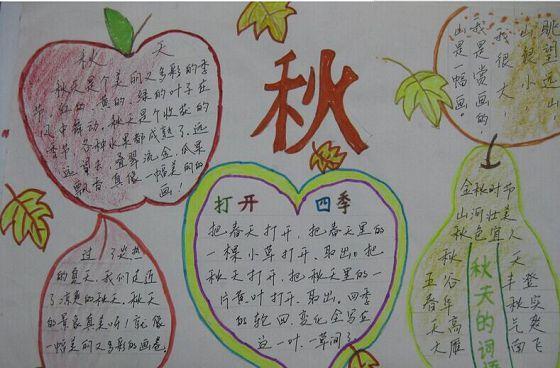 秋天
秋天是个美丽又多彩的季
节，红的、黄的、绿的叶子在
风中舞动，秋天是个收获的
季节，各种水果都成熟了。远
远望去，叠翠流金，瓜果
飘香，真像一幅美丽的
画！
秋
眺望远山，
山很小，
我很大，
我是赏画的，
山是一幅画。
打开四季
把春天打开，把春天里的
一棵小草打开、取出。把
秋天打开，把秋天里的一
片黄叶打开、取出。四季
的轮回、变化全写在
这一叶一草间了。
过了炎热
的夏天，我们走近
了凉爽的秋天，秋天
的景象真美呀！就像
一幅美丽又多彩的画卷。
金秋时节
山河壮美
秋色宜人
秋天的词语
秋高气爽
五谷丰登
春华秋实
大雁南飞